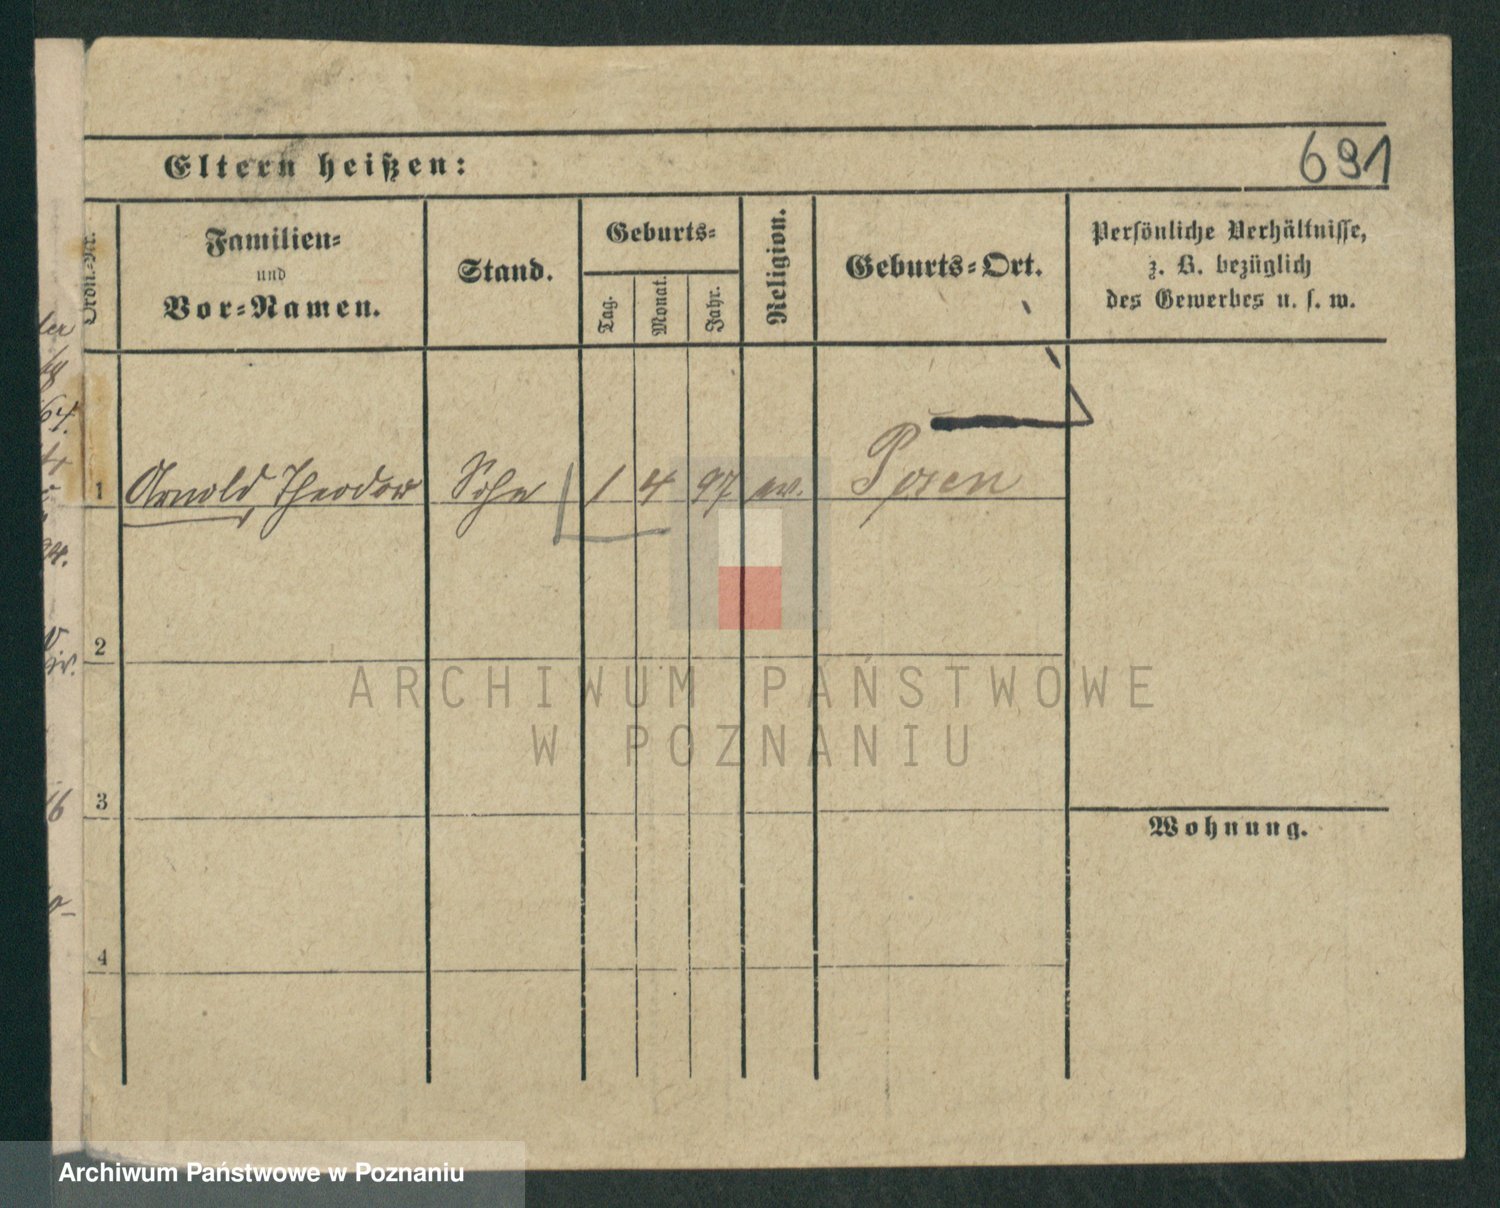 Eltern heißen:
691
Ordn.-Nr.
Familien-
und
Vor-Namen.
Stand.
Geburts-
Tag.
Monat.
Jahr.
Religion.
Geburts-Ort.
Persönliche Verhältnisse,
z. B. bezüglich
des Gewerbes u. s. w.
1 Arnold, Theodor Sohn 1 4 97 ev. Posen
2
3
4
Wohnung.
ARCHIWUM PAŃSTWOWE
W POZNANIU
Archiwum Państwowe w Poznaniu